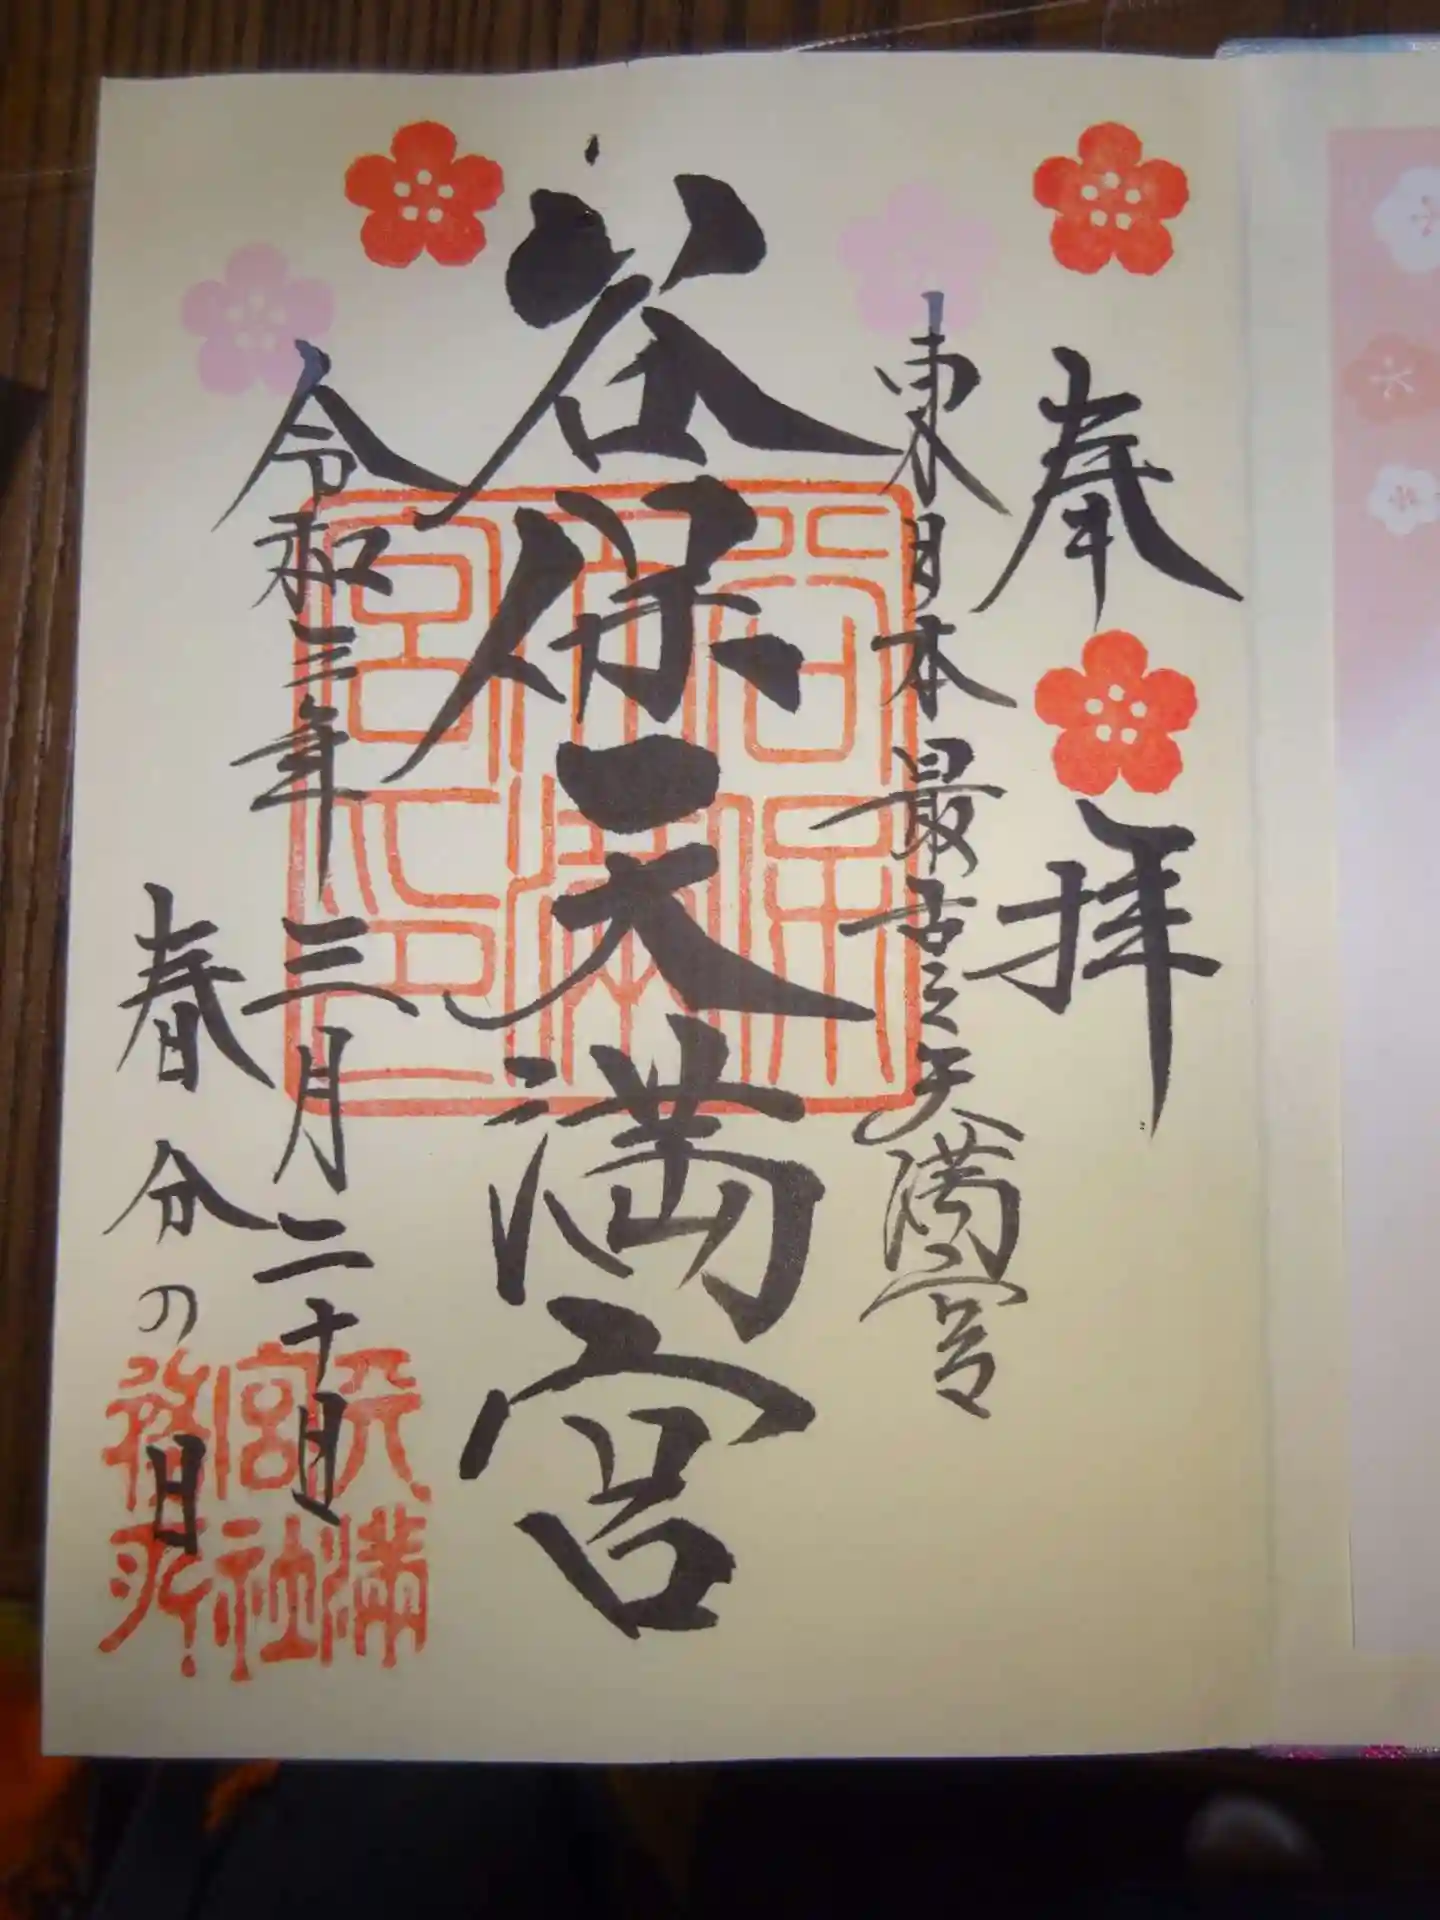 奉拝
東日本最古之天満宮
谷保天満宮
令和三年
三月二十日
春分の日
谷保天満宮印
天満宮社務所